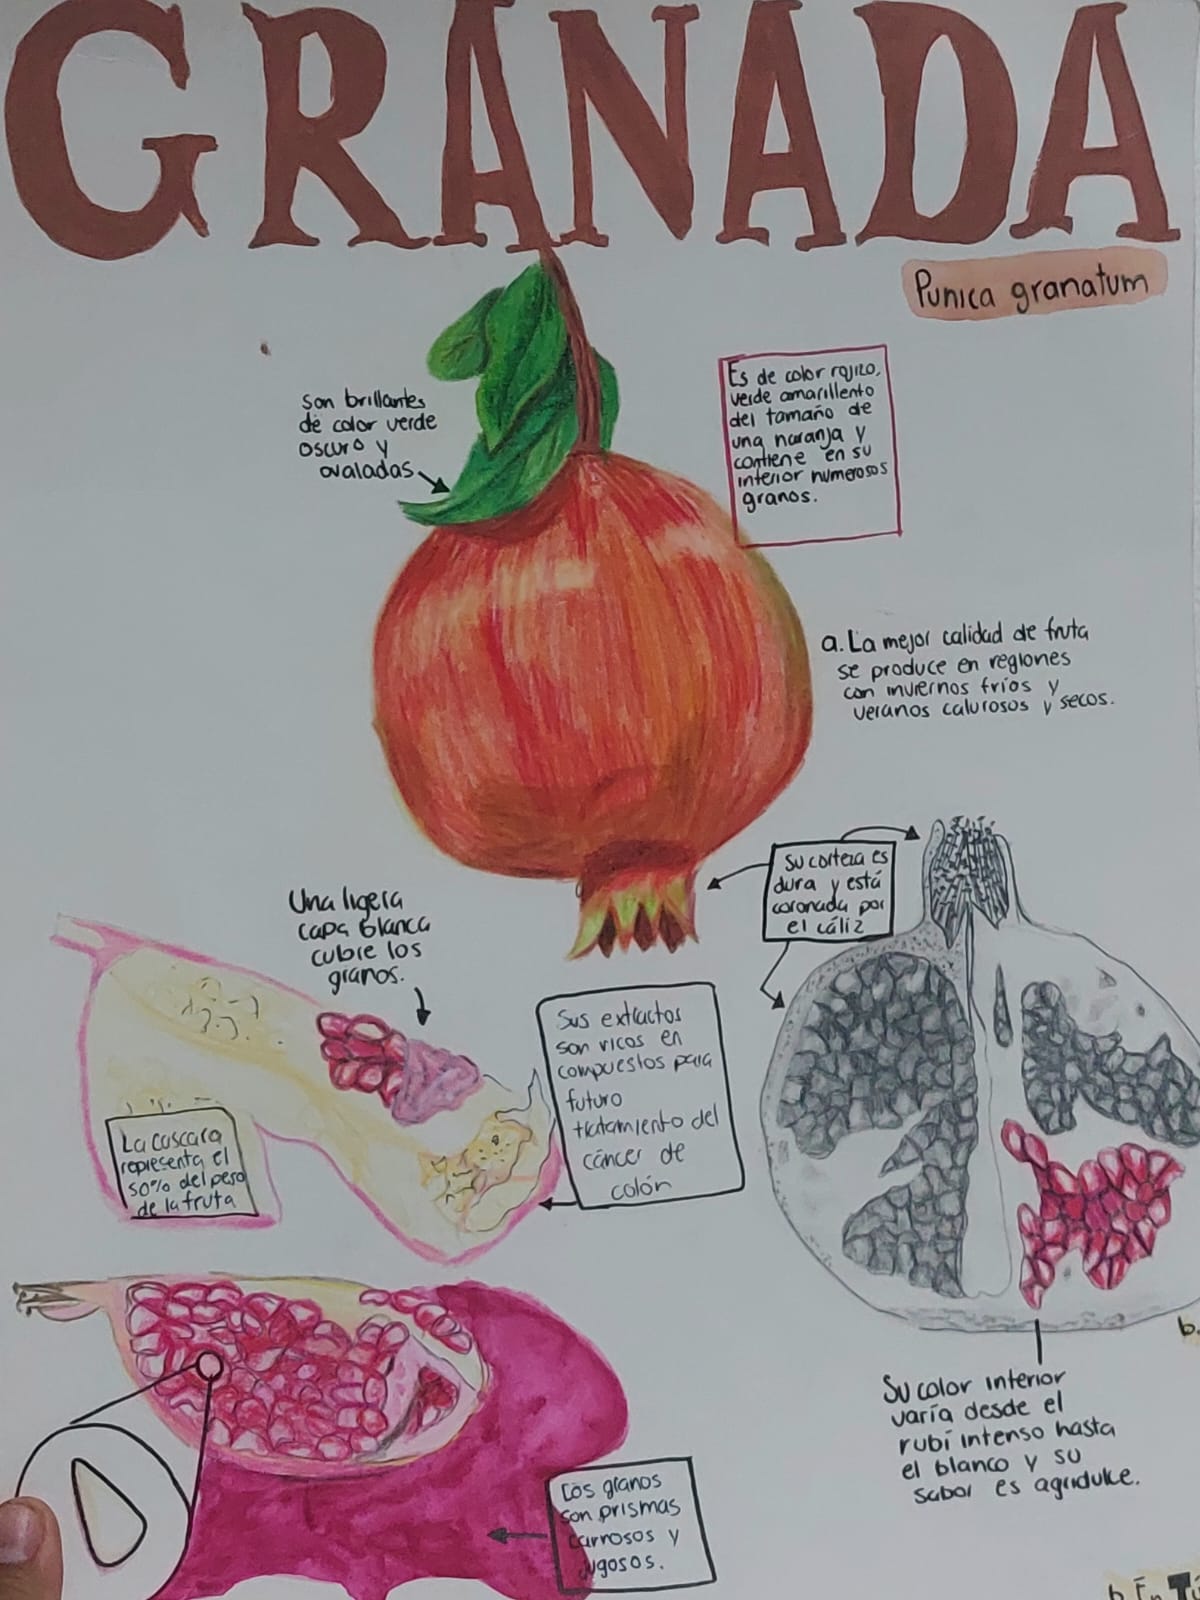 GRANADA
Punica granatum
son brillantes
de color verde
oscuro y
ovaladas
Es de color rojizo,
verde amarillento
del tamaño de
una naranja y
contiene en su
interior numerosos
granos.
a. La mejor calidad de fruta
se produce en regiones
con inviernos fríos y
veranos calurosos y secos.
Su corteza es
dura y está
coronada por
el cáliz
Una ligera
capa blanca
cubre los
granos.
Sus extractos
son ricos en
compuestos para
futuro
tratamiento del
cáncer de
colón
La cascara
representa el
50% del peso
de la fruta
b.
Su color interior
varía desde el
rubí intenso hasta
el blanco y su
sabor es agridulce.
Los granos
son prismas
carrosos y
jugosos.
b. En